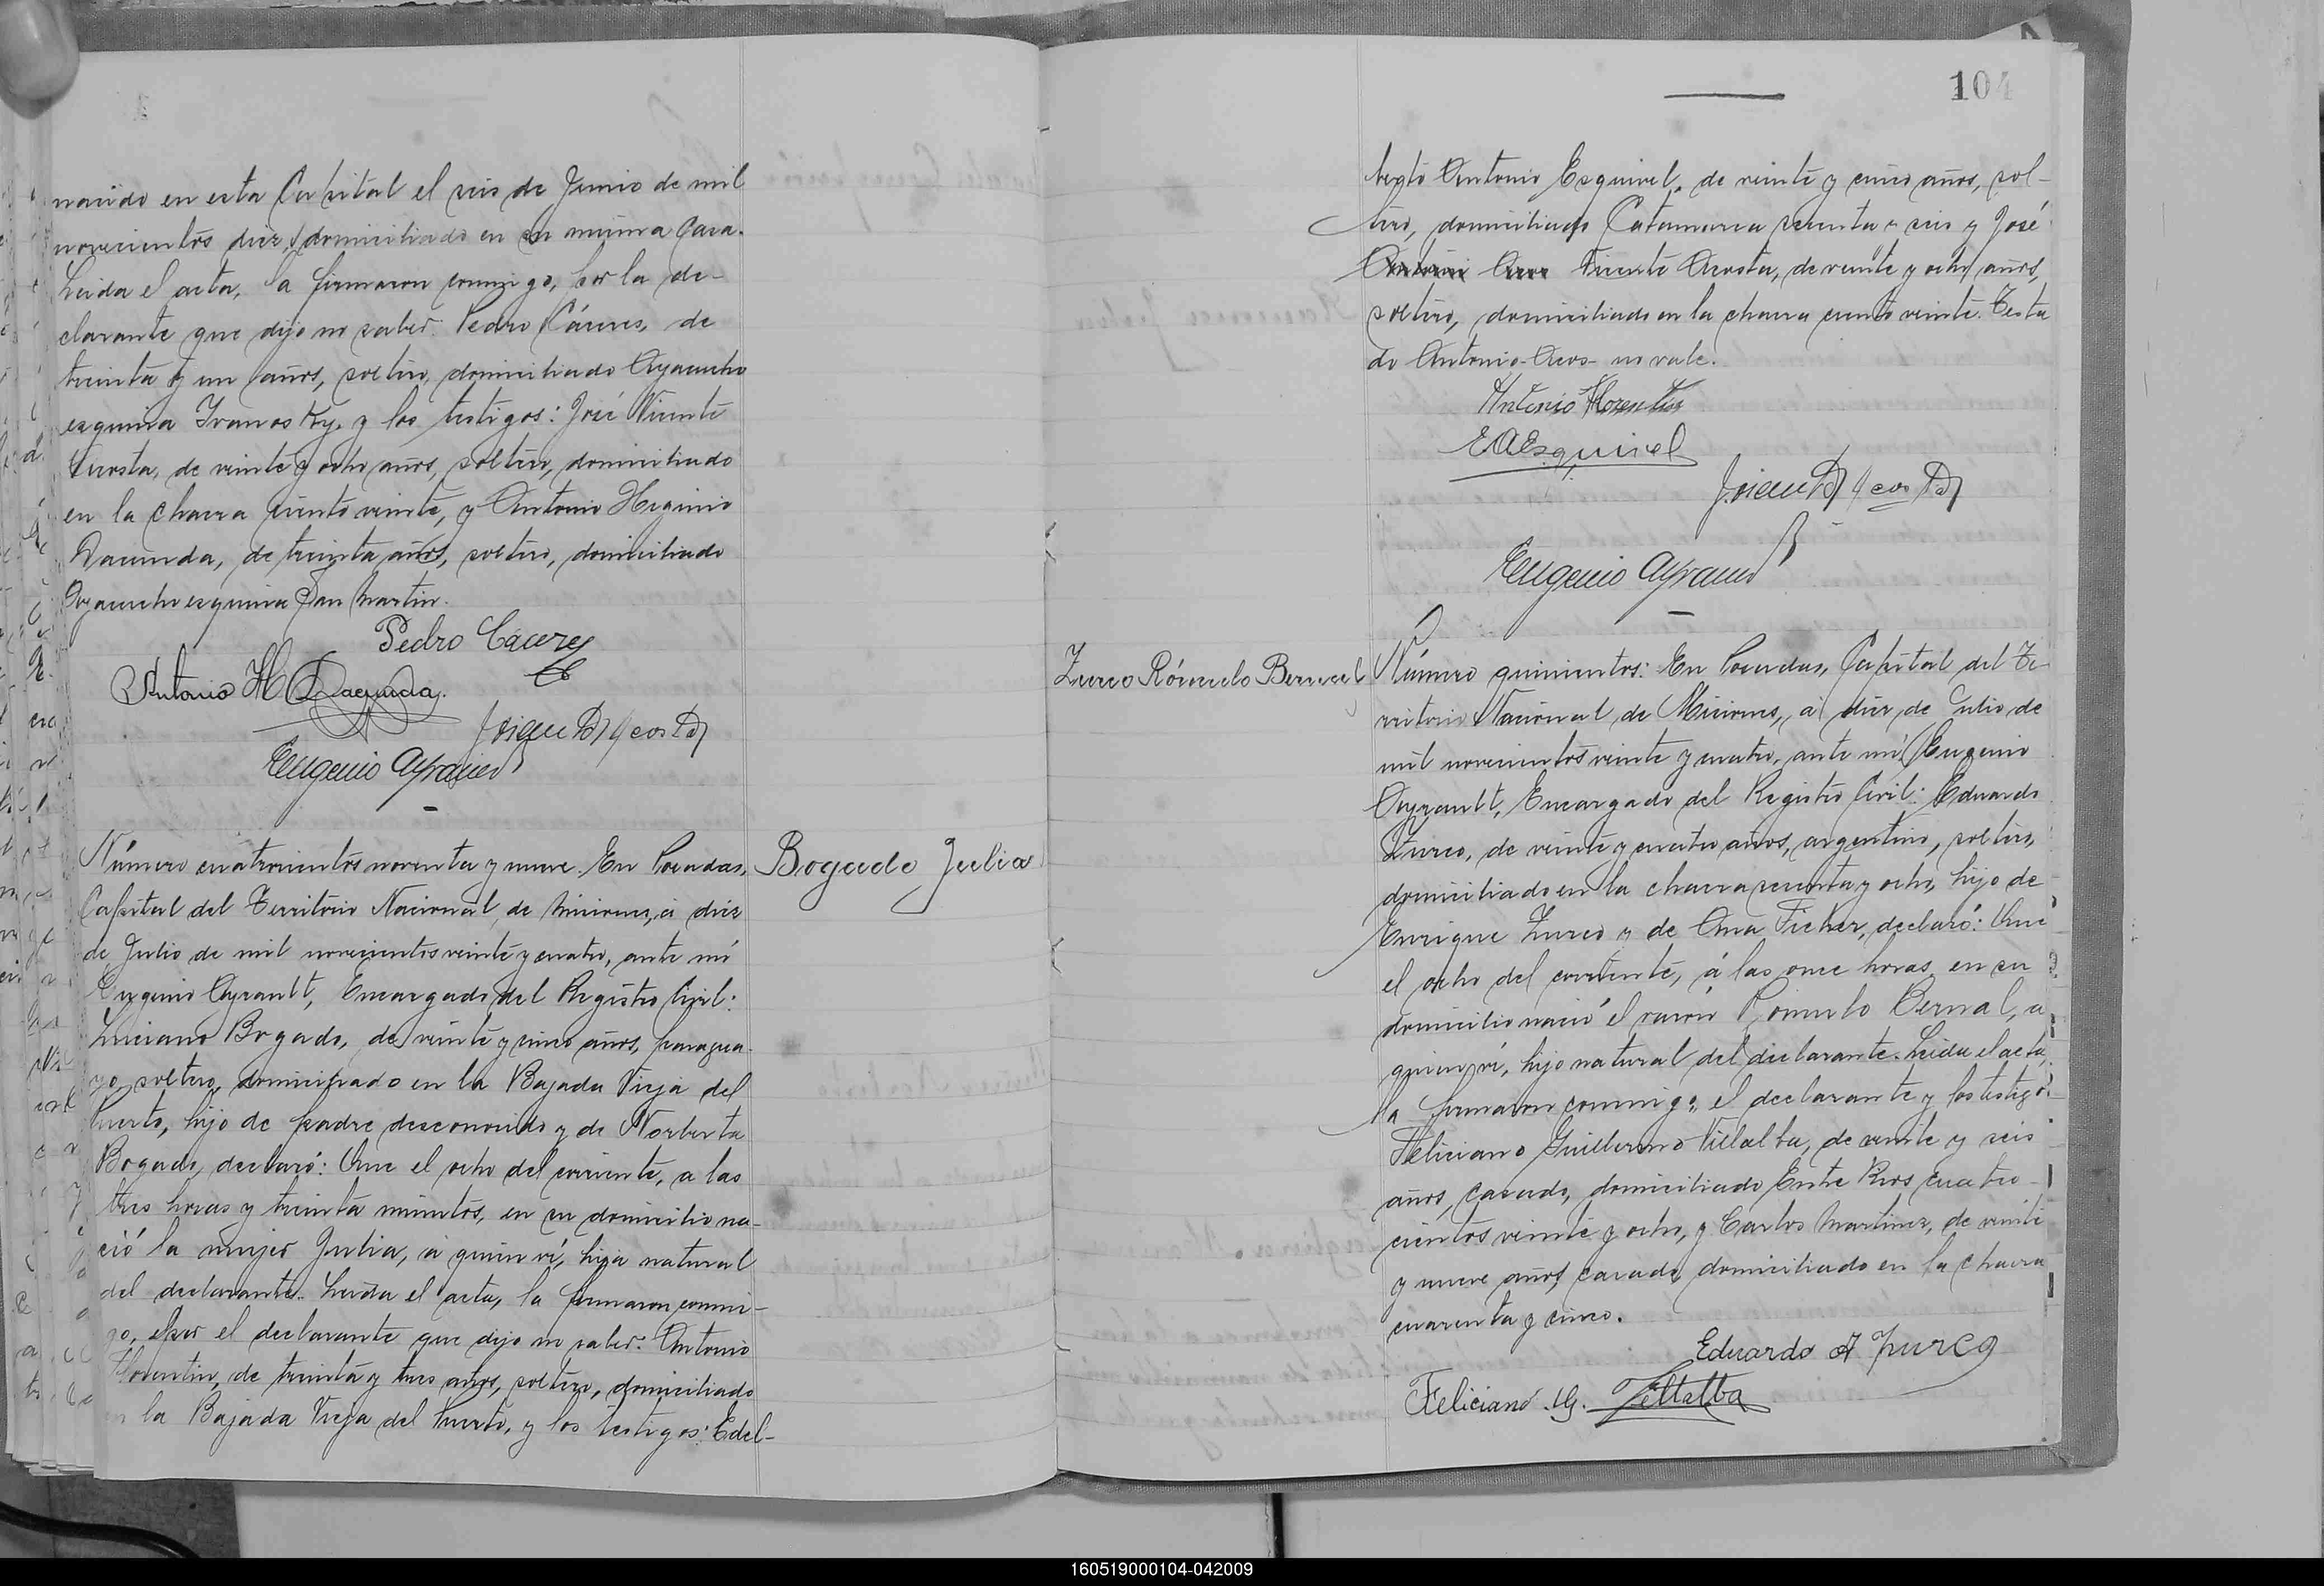 nacido en esta Capital el seis de Junio de mil
novecientos diez, domiciliado en su misma casa.
Leida el acta, la firmaron conmigo, por la de-
clarante que dijo no saber: Pedro Cáceres, de
treinta y un años, soltero, domiciliado Ayacucho
esquina Ivanosky, y los testigos: José Vicente
Acosta, de veinte y ocho años, soltero, domiciliado
en la chacra ciento veinte, y Antonio Higinio
Dacunda, de treinta años, soltero, domiciliado
Ayacucho esquina San Martin.
Pedro Cáceres
Antonio H Dacunda
José V Acosta
Eugenio Ayrault
Bogado Julia
Número cuatrocientos noventa y nueve. En Posadas,
Capital del Territorio Nacional de Misiones, á diez
de Julio de mil novecientos veinte y cuatro, ante mí
Eugenio Ayrault, Encargado del Registro Civil:
Luciano Bogado, de veinte y cinco años, paragua-
yo, soltero, domiciliado en la Bajada Vieja del
Puerto, hijo de padre desconocido y de Norberta
Bogado, declaró: Que el ocho del corriente, a las
tres horas y treinta minutos, en su domicilio na-
ció la mujer Julia, á quien ví, hija natural
del declarante. Leida el acta, la firmaron conmi-
go, por el declarante que dijo no saber: Antonio
Florentin, de treinta y tres años, soltero, domiciliado
en la Bajada Vieja del Puerto, y los testigos: Edel-
104
berto Antonio Esquivel, de veinte y cinco años, sol-
tero, domiciliado Catamarca setenta y seis y José
Antonio Acos Vicente Acosta, de veinte y ocho años,
soltero, domiciliado en la chacra ciento veinte. Testa
do Antonio-Acos- no vale.
Antonio Florentin
E A Esquivel
José V Acosta
Eugenio Ayrault
Zurco Rómulo Bernal
Número quinientos: En Posadas, Capital del Te-
rritorio Nacional de Misiones, á diez de Julio de
mil novecientos veinte y cuatro, ante mí Eugenio
Ayrault, Encargado del Registro Civil: Eduardo
Zurco, de veinte y cuatro años, argentino, soltero,
domiciliado en la chacra sesenta y ocho, hijo de
Enrique Zurco y de Ana Ficher, declaró: Que
el ocho del corriente, á las once horas en su
domicilio nació el varón Rómulo Bernal, a
quien ví, hijo natural del declarante. Leida el acta,
la firmaron conmigo, el declarante y los testigos:
Feliciano Guillermo Villalba, de veinte y seis
años, casado, domiciliado Entre Rios cuatro-
cientos veinte y ocho, y Carlos Martinez, de veinte
y nueve años, casado, domiciliado en la chacra
cuarenta y cinco.
Eduardo A Zurco
Feliciano G. Villalba
160519000104-042009